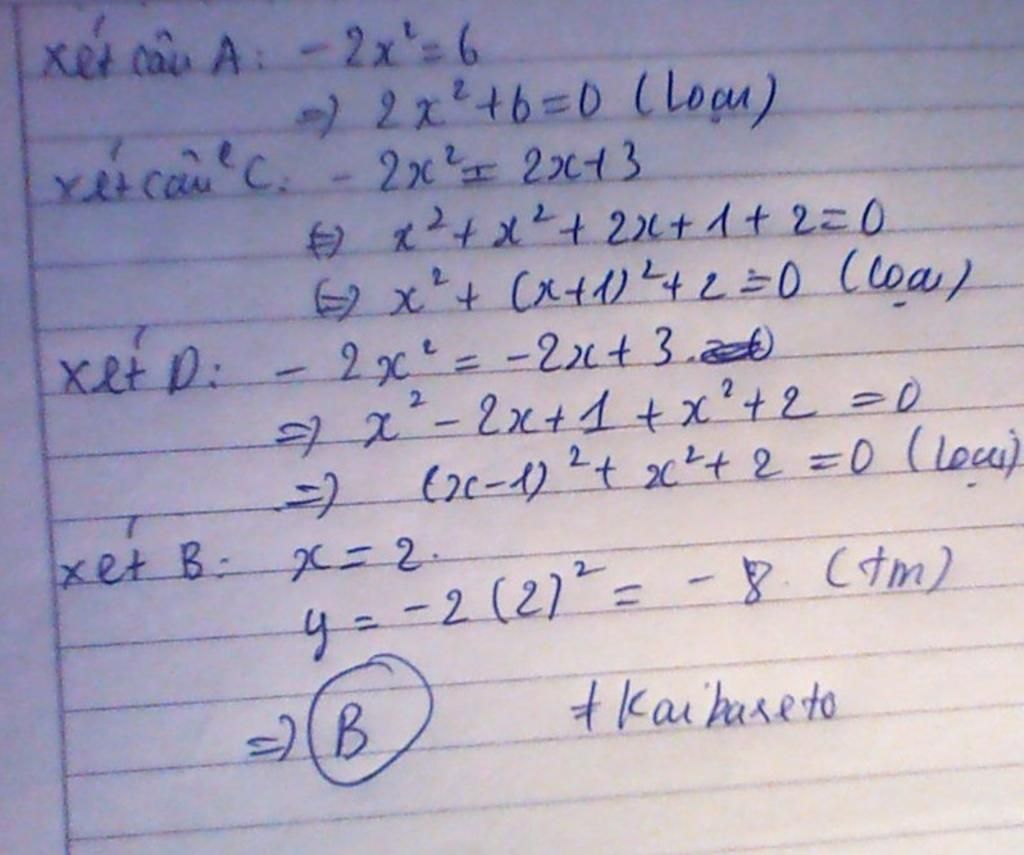 xét câu A: - 2x² = 6
=> 2x² + 6 = 0 (Loại)
xét câu C: - 2x² = 2x+3
<=> x² + x² + 2x + 1 + 2 = 0
<=> x² + (x+1)² + 2 = 0 (loại)
xét D: - 2x² = -2x + 3.
=> x² - 2x + 1 + x² + 2 = 0
=> (x-1)² + x² + 2 = 0 (Loại)
xét B: x = 2.
y = -2(2)² = - 8. (tm)
=> B